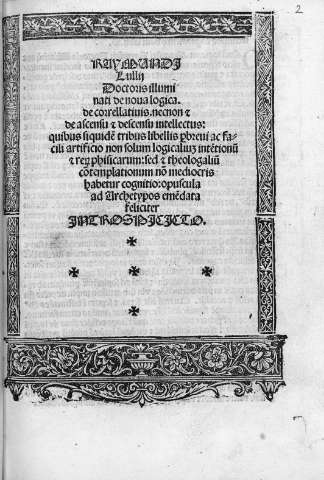 2
RAYMANDI
Lullij
Doctoris illumi
nati de noua logica.
de correllatiuis. necnon &
de ascensu & descensu intellectus:
quibus siquidē tribus libellis pbreui ac fa-
cili artificio non solum logicaliuʒ intētionū
& rex phisicarum: sed & theologaliū
cōtemplationum nō mediocris
habetur cognitio: opuscula
ad Archetypos emēdata
feliciter
INTROSPICITO.
2